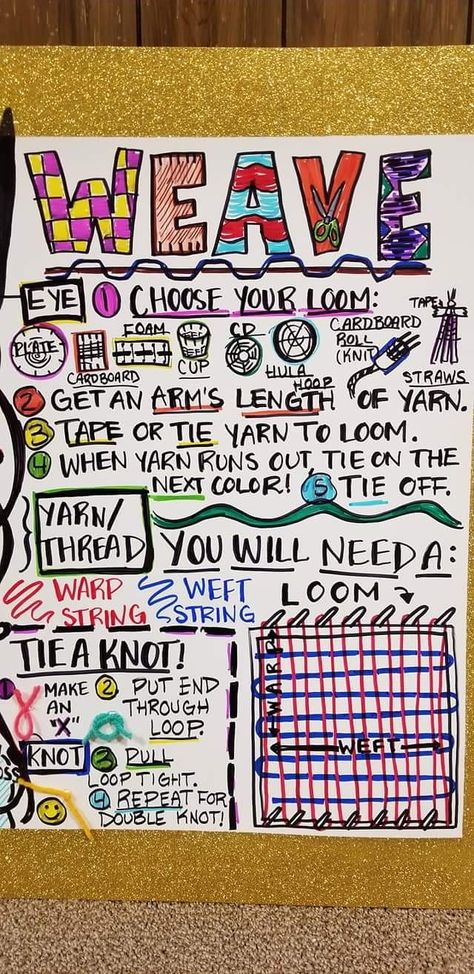 WEAVE
EYE
① CHOOSE YOUR LOOM:
PLATE
CARDBOARD
FOAM
CUP
CD
HULA
HOOP
CARDBOARD
ROLL
(KNIT)
TAPE
STRAWS
② GET AN ARM'S LENGTH OF YARN.
③ TAPE OR TIE YARN TO LOOM.
④ WHEN YARN RUNS OUT TIE ON THE
NEXT COLOR! ⑤ TIE OFF.
YARN/
THREAD
YOU WILL NEED A:
WARP
STRING
WEFT
STRING
LOOM
TIE A KNOT!
① MAKE
AN
"X"
② PUT END
THROUGH
LOOP.
KNOT
③ PULL
LOOP TIGHT.
④ REPEAT FOR
DOUBLE KNOT!
WARP
WEFT